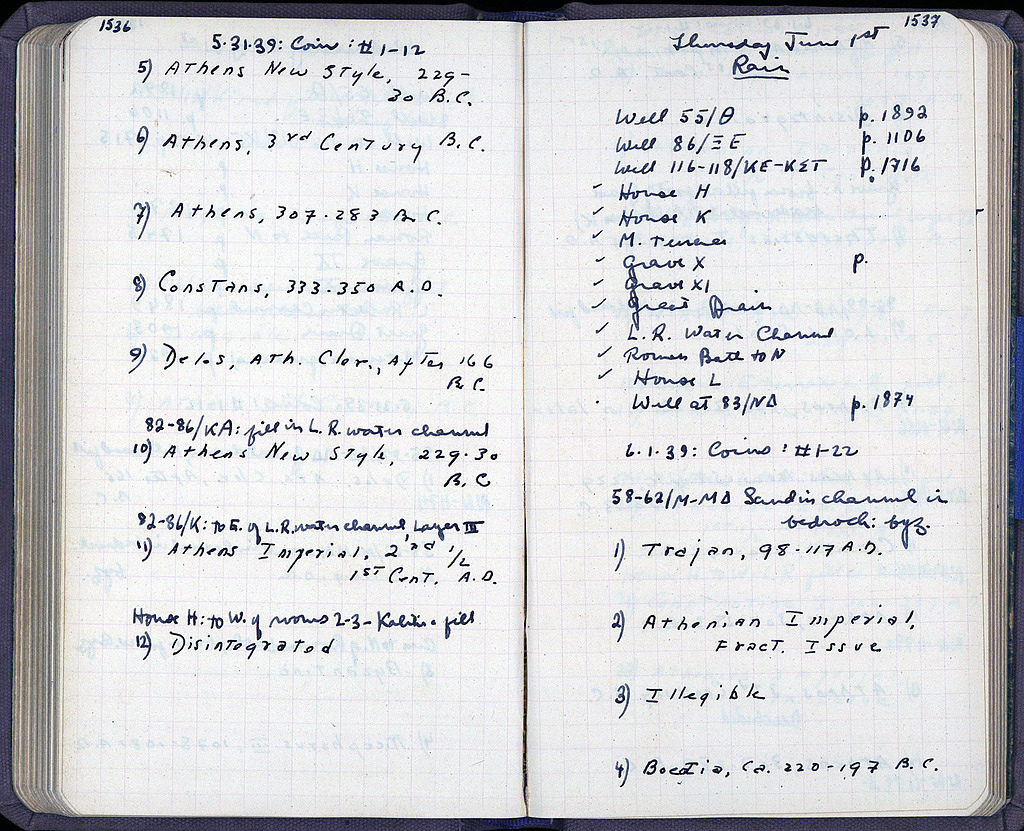 1536
5·31·39: Coins: #1-12
5) Athens New Style, 229-
30 B.C.
6) Athens, 3rd Century B.C.
7) Athens, 307-283 B.C.
8) Constans, 333-350 A.D.
9) Delos, Ath. Cler., After 166
B.C.
82-86/KA: fill in L.R. water channel
10) Athens New Style, 229-30
B.C.
82-86/K: to E. of L.R. water channel Layer III
11) Athens Imperial, 2nd 1/2
1st Cent. A.D.
House H: to W. of rooms 2-3- fill
12) Disintegrated
1537
Thursday June 1st
Rain
Well 55/Θ p. 1892
Well 86/ΞE p. 1106
Well 116-118/KE-KΣT p. 1716
✓ House H
✓ House K
✓ M. Terrace
✓ Grave X p.
✓ Grave XI
✓ Great Drain
✓ L.R. Water Channel
✓ Roman Bath to N
✓ House L
· Well at 83/NΔ p. 1874
6·1·39: Coins: #1-22
58-62/M-MΔ Sand in channel in
bedrock: byz.
1) Trajan, 98-117 A.D.
2) Athenian Imperial,
Fract. Issue
3) Illegible
4) Boeotia, ca. 220-197 B.C.